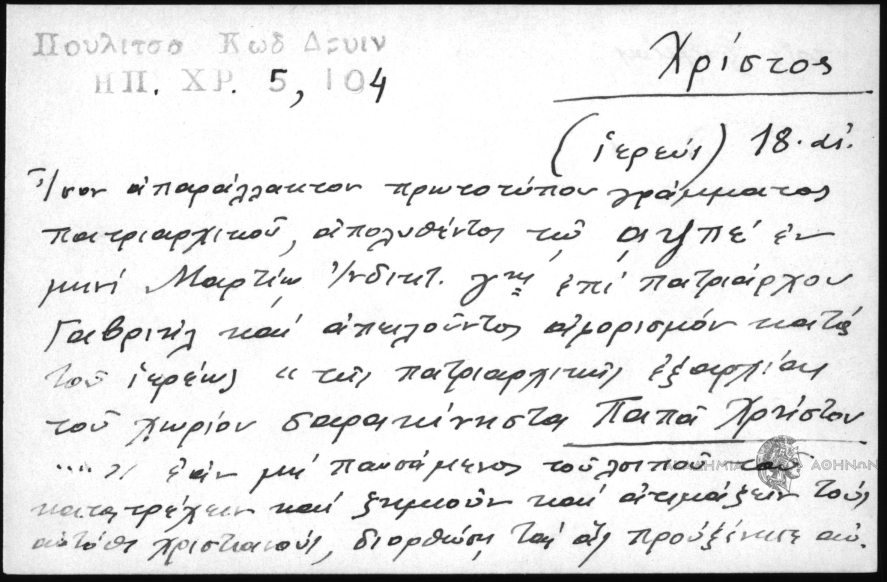 Πουλιτσα Κωδ Δρυιν
ΗΠ. ΧΡ. 5, 104
Χρίστος
(ἱερεύς) 18. αἰ.
Ἴσον ἀπαράλλακτον πρωτοτύπου γράμματος
πατριαρχικοῦ, ἀπολυθέντος τῷ αψπέ ἐν
μηνί Μαρτίῳ Ἰνδικτ. γης ἐπί πατριάρχου
Γαβριήλ καί ἀπειλοῦντος ἀφορισμόν κατά
τοῦ ἱερέως "τῆς πατριαρχικῆς ἐξαρχίας
τοῦ χωρίου Σαρακίνηστα Παπᾶ Χρήστου
....." ἐάν μή παυσάμενος τοῦ λοιποῦ τοῦ
κατατρέχειν καί ζημιοῦν καί ἀτιμάζειν τούς
αὐτόθι χριστιανούς, διορθώσῃ τάς ἅς προὐξένησε αὐ.
ΑΚΑΔΗΜΙΑ ΑΘΗΝΩΝ